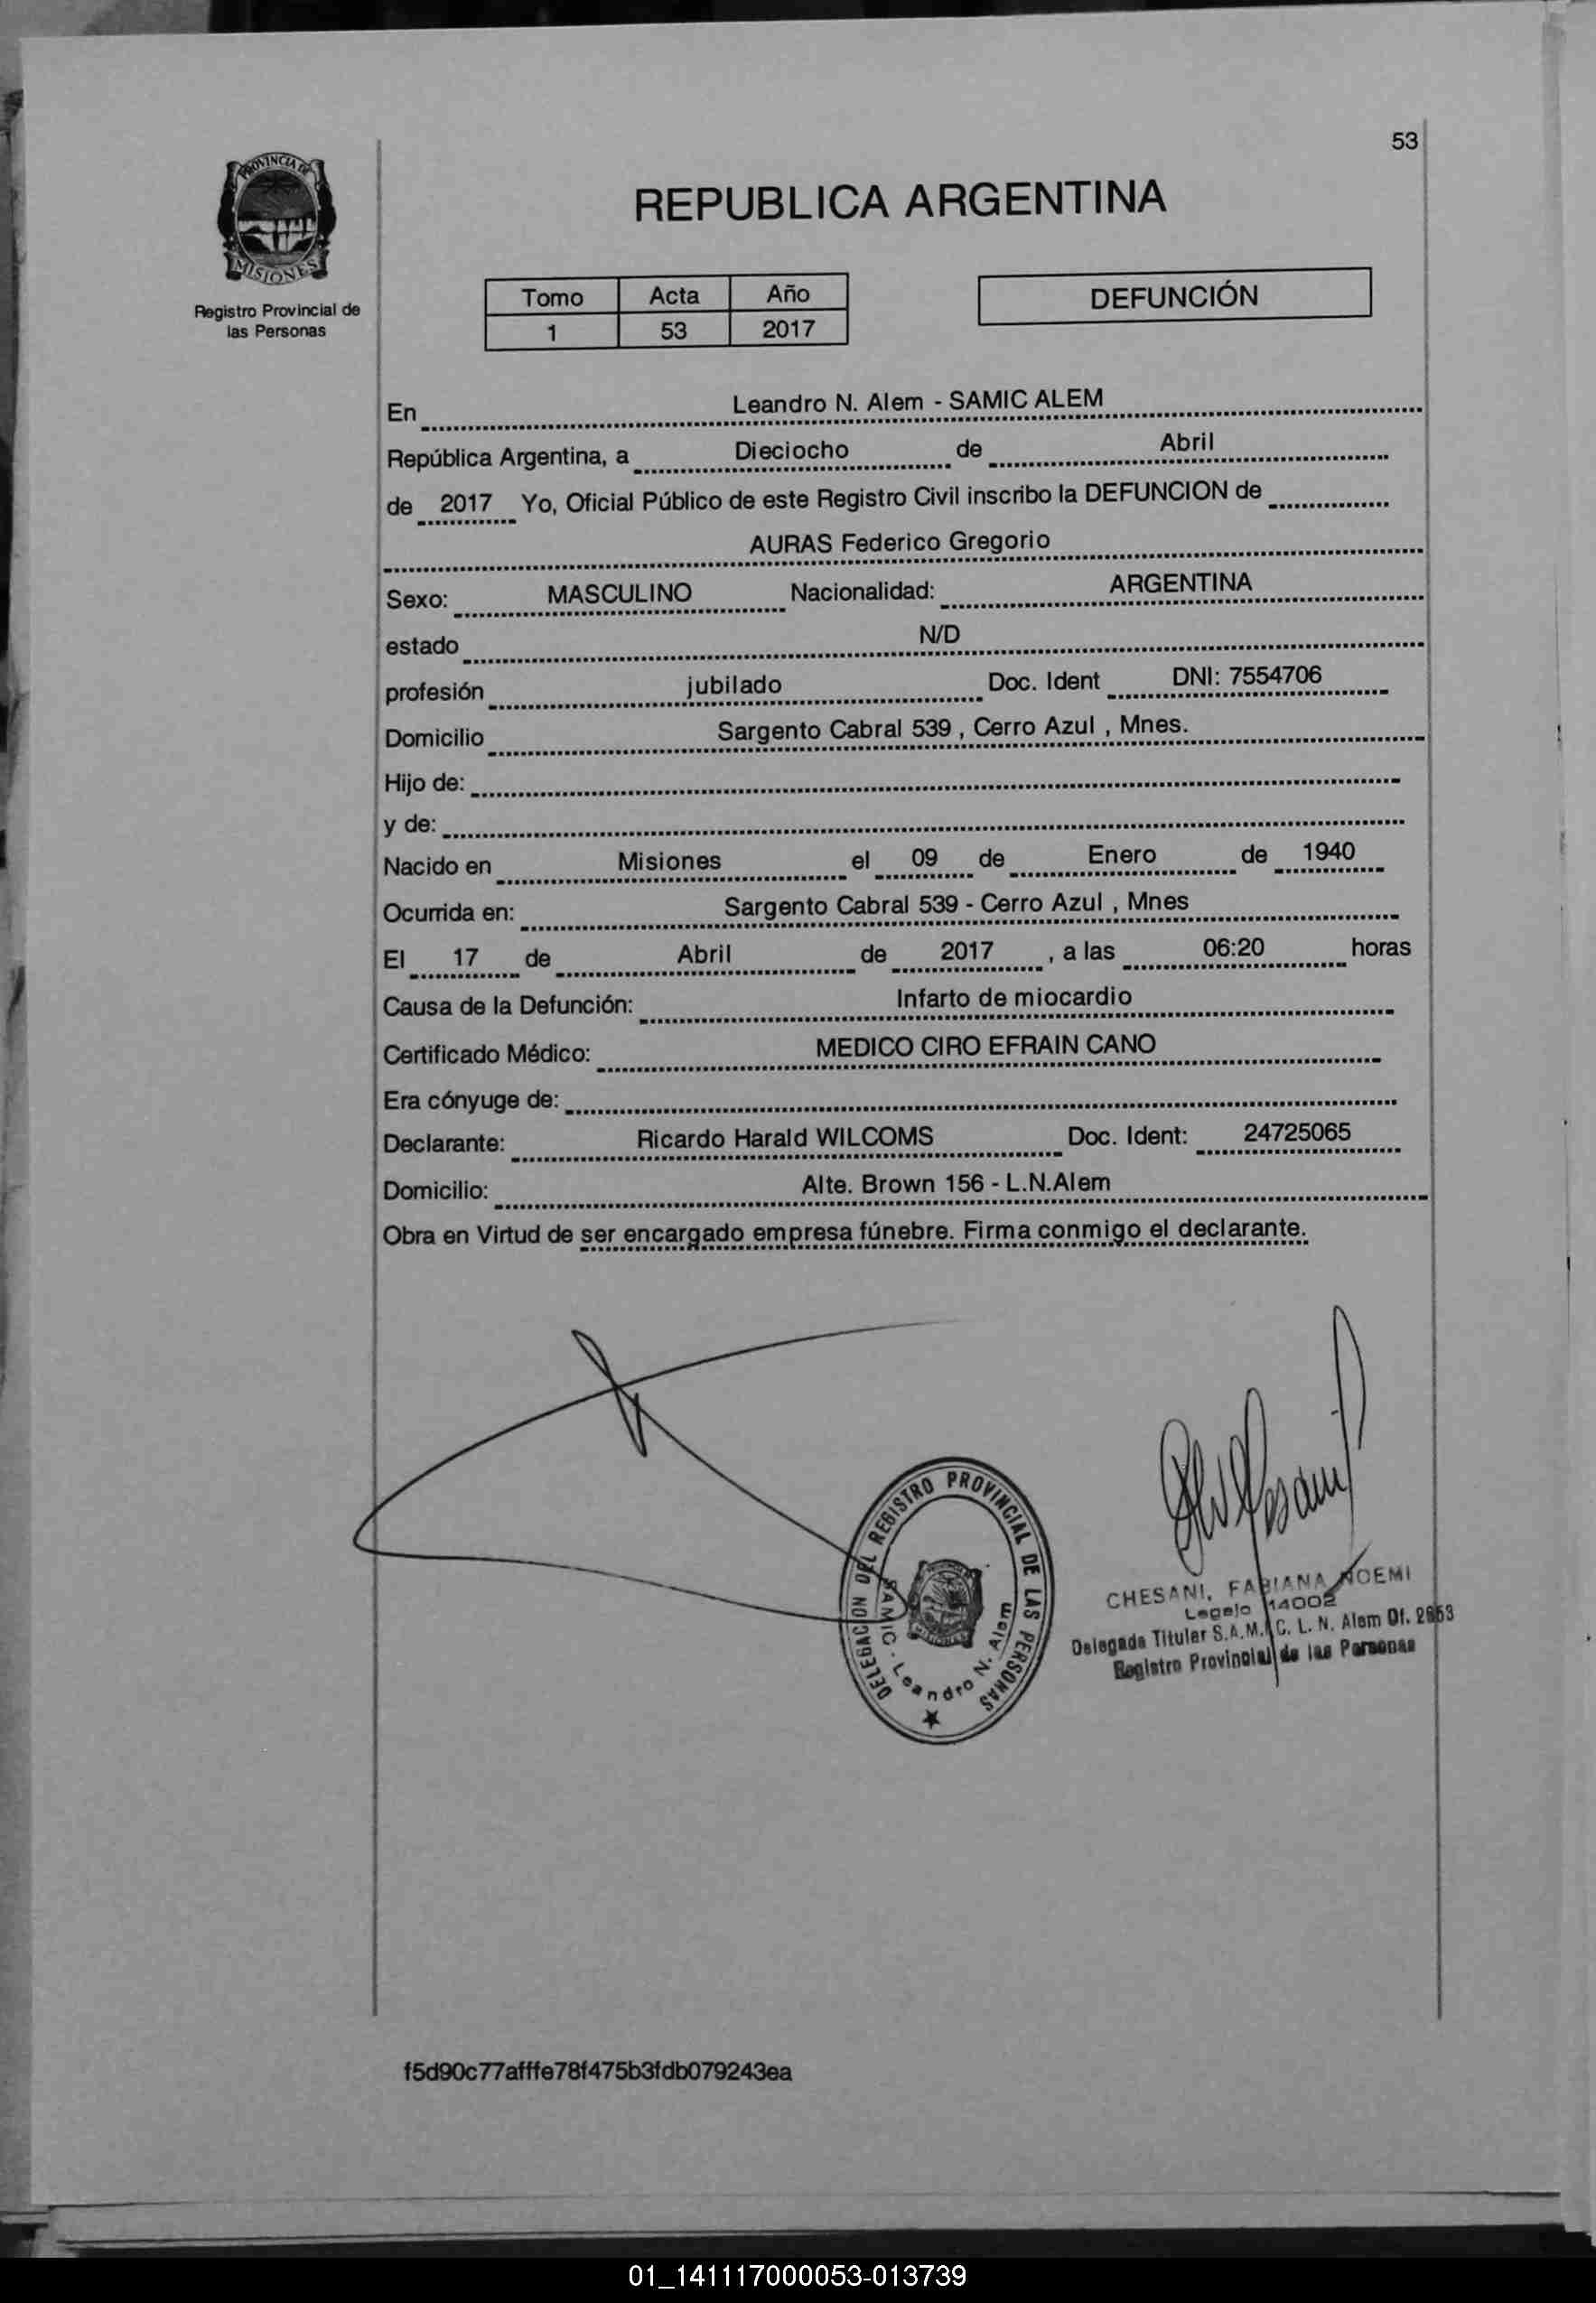 53
PROVINCIA DE
MISIONES
Registro Provincial de
las Personas
REPUBLICA ARGENTINA
Tomo Acta Año
1 53 2017
DEFUNCIÓN
En Leandro N. Alem - SAMIC ALEM
República Argentina, a Dieciocho de Abril
de 2017 Yo, Oficial Público de este Registro Civil inscribo la DEFUNCION de
AURAS Federico Gregorio
Sexo: MASCULINO Nacionalidad: ARGENTINA
estado N/D
profesión jubilado Doc. Ident DNI: 7554706
Domicilio Sargento Cabral 539 , Cerro Azul , Mnes.
Hijo de:
y de:
Nacido en Misiones el 09 de Enero de 1940
Ocurrida en: Sargento Cabral 539 - Cerro Azul , Mnes
El 17 de Abril de 2017 , a las 06:20 horas
Causa de la Defunción: Infarto de miocardio
Certificado Médico: MEDICO CIRO EFRAIN CANO
Era cónyuge de:
Declarante: Ricardo Harald WILCOMS Doc. Ident: 24725065
Domicilio: Alte. Brown 156 - L.N.Alem
Obra en Virtud de ser encargado empresa fúnebre. Firma conmigo el declarante.
DELEGACION DEL REGISTRO PROVINCIAL DE LAS PERSONAS
SAMIC - Leandro N. Alem
CHESANI, FABIANA NOEMI
Legajo 14002
Delegada Titular S.A.M.I.C. L. N. Alem Of. 2653
Registro Provincial de las Personas
f5d90c77afffe78f475b3fdb079243ea
01_141117000053-013739